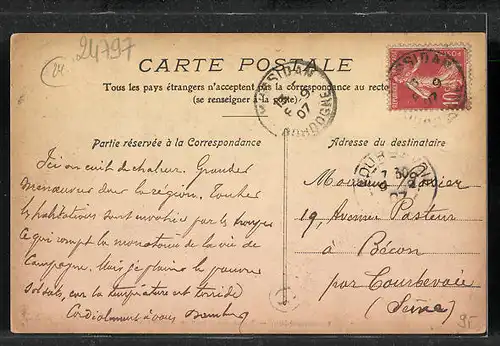 24797
CARTE POSTALE
Tous les pays étrangers n'acceptent pas la correspondance au recto
(se renseigner à la poste)
MUSSIDAN
9
07
DORDOGNE
Partie réservée à la Correspondance
Ici on cuit de chaleur. Grandes
manœuvres dans la région. Toutes
les habitations sont envahies par les troupes
ce qui rompt la monotonie de la vie de
Campagne. Mais je plains les pauvres
soldats, car la température est torride
Cordialement à vous
Adresse du destinataire
Monsieur
19, Avenue Pasteur
à
Bécon
par Courbevoie
(Seine)